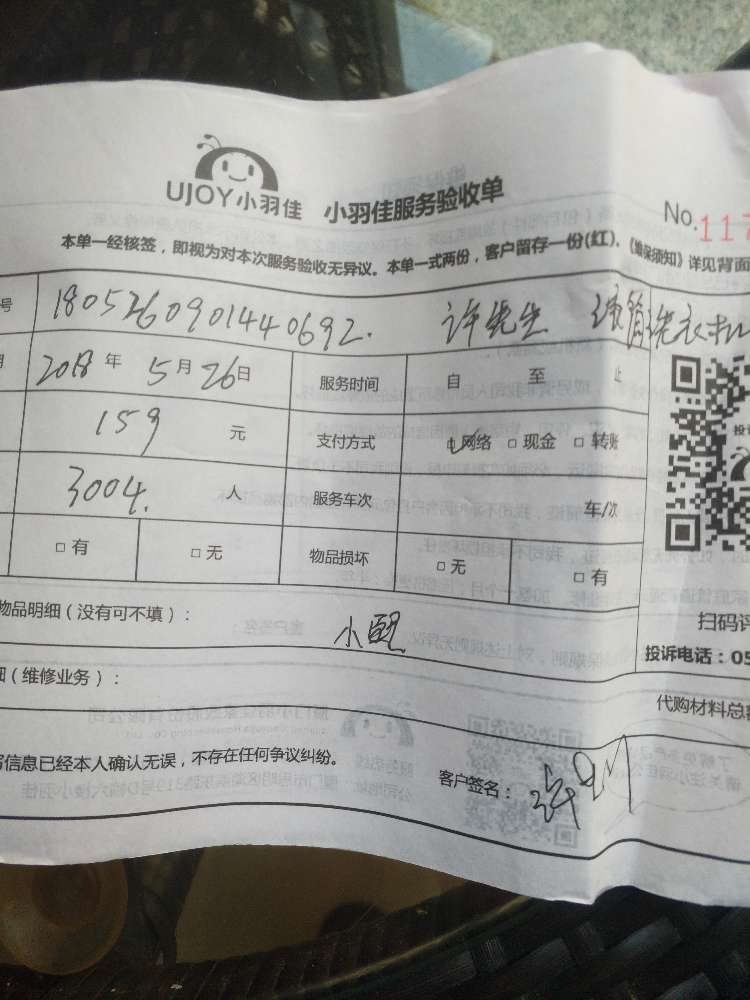 UJOY小羽佳 小羽佳服务验收单
No.117
本单一经核签，即视为对本次服务验收无异议。本单一式两份，客户留存一份(红)，《维保须知》详见背面
号 1805260901440692. 许先生 洗衣
2018年5月26日 服务时间 自 至 止
159 元 支付方式 网络 □现金 □转账
3004. 人 服务车次 车/次
□有 □无 物品损坏 □无 □有
物品明细（没有可不填）：
扫码评
投诉电话：05
（维修业务）：
代购材料总
信息已经本人确认无误，不存在任何争议纠纷。
客户签名：许